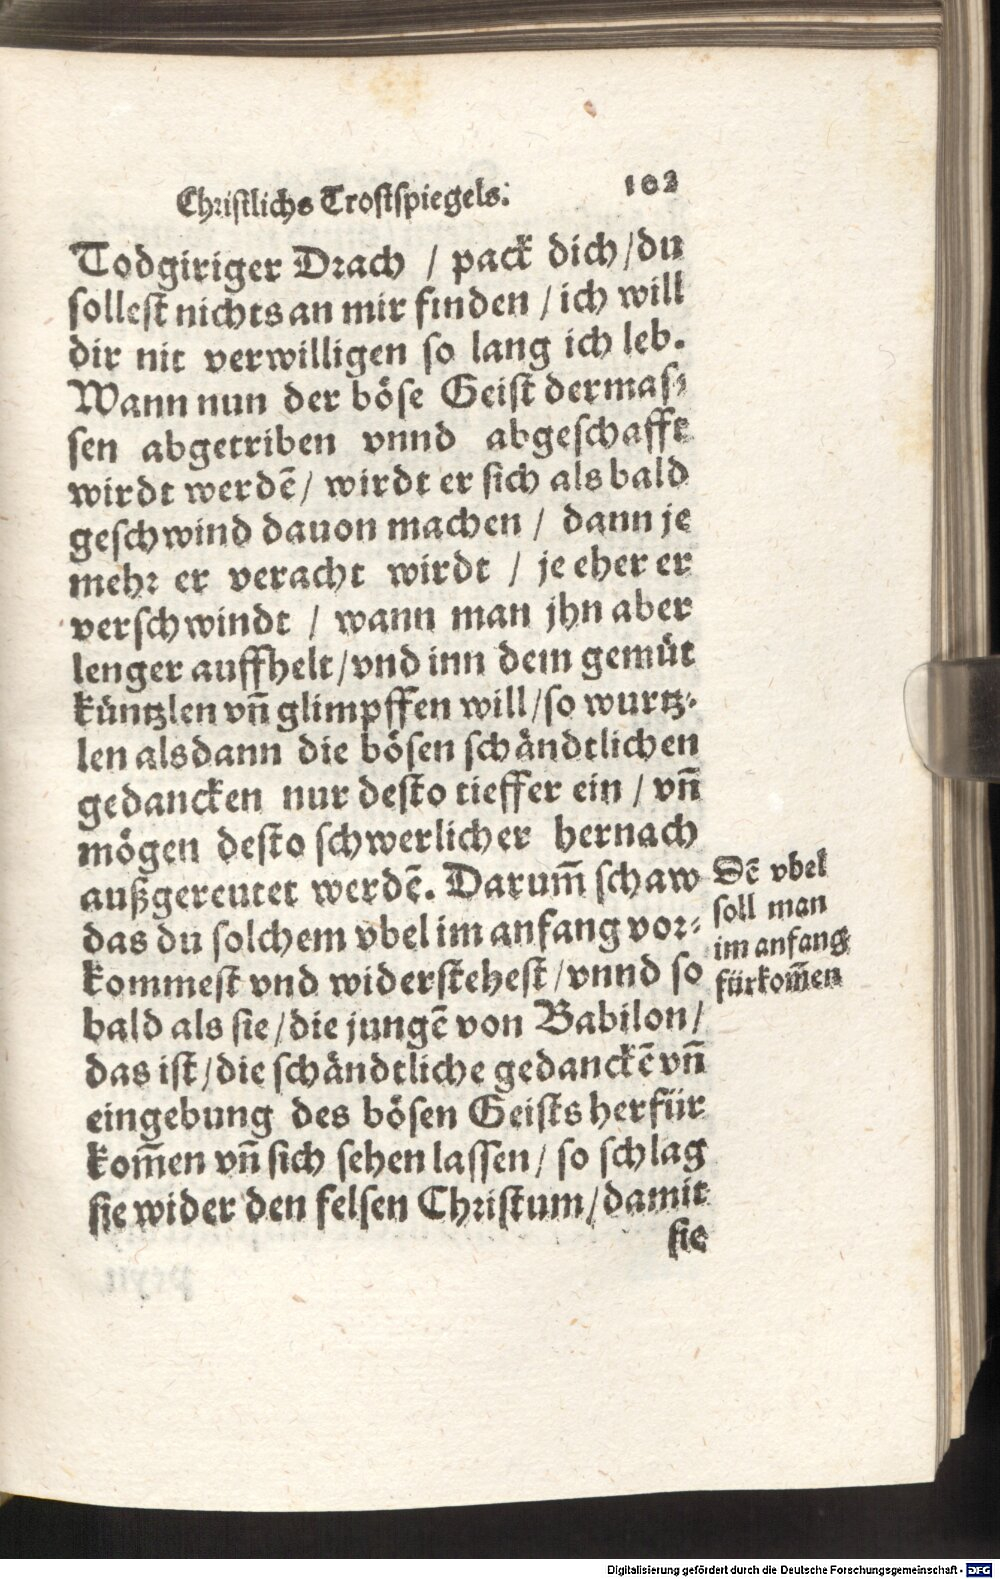 Christlichs Trostspiegels. 102
Todgiriger Drach / pack dich / du
sollest nichts an mir finden / ich will
dir nit verwilligen so lang ich leb.
Wann nun der böse Geist dermas-
sen abgetriben vnnd abgeschafft
wirdt werdẽ / wirdt er sich als bald
geschwind dauon machen / dann je
mehr er veracht wirdt / je eher er
verschwindt / wann man jhn aber
lenger auffhelt / vnd inn dem gemüt
küntzlen vñ glimpffen will / so wurtz-
len alsdann die bösen schändtlichen
gedancken nur desto tieffer ein / vñ
mögen desto schwerlicher hernach
außgereutet werdẽ. Darum̃ schaw
das du solchem vbel im anfang vor-
kommest vnd widerstehest / vnnd so
bald als sie / die jungẽ von Babilon /
das ist / die schändtliche gedanckẽ vñ
eingebung des bösen Geists herfür
kom̃en vñ sich sehen lassen / so schlag
sie wider den felsen Christum / damit
sie
Dẽ vbel
soll man
im anfang
fürkom̃en
Digitalisierung gefördert durch die Deutsche Forschungsgemeinschaft - DFG